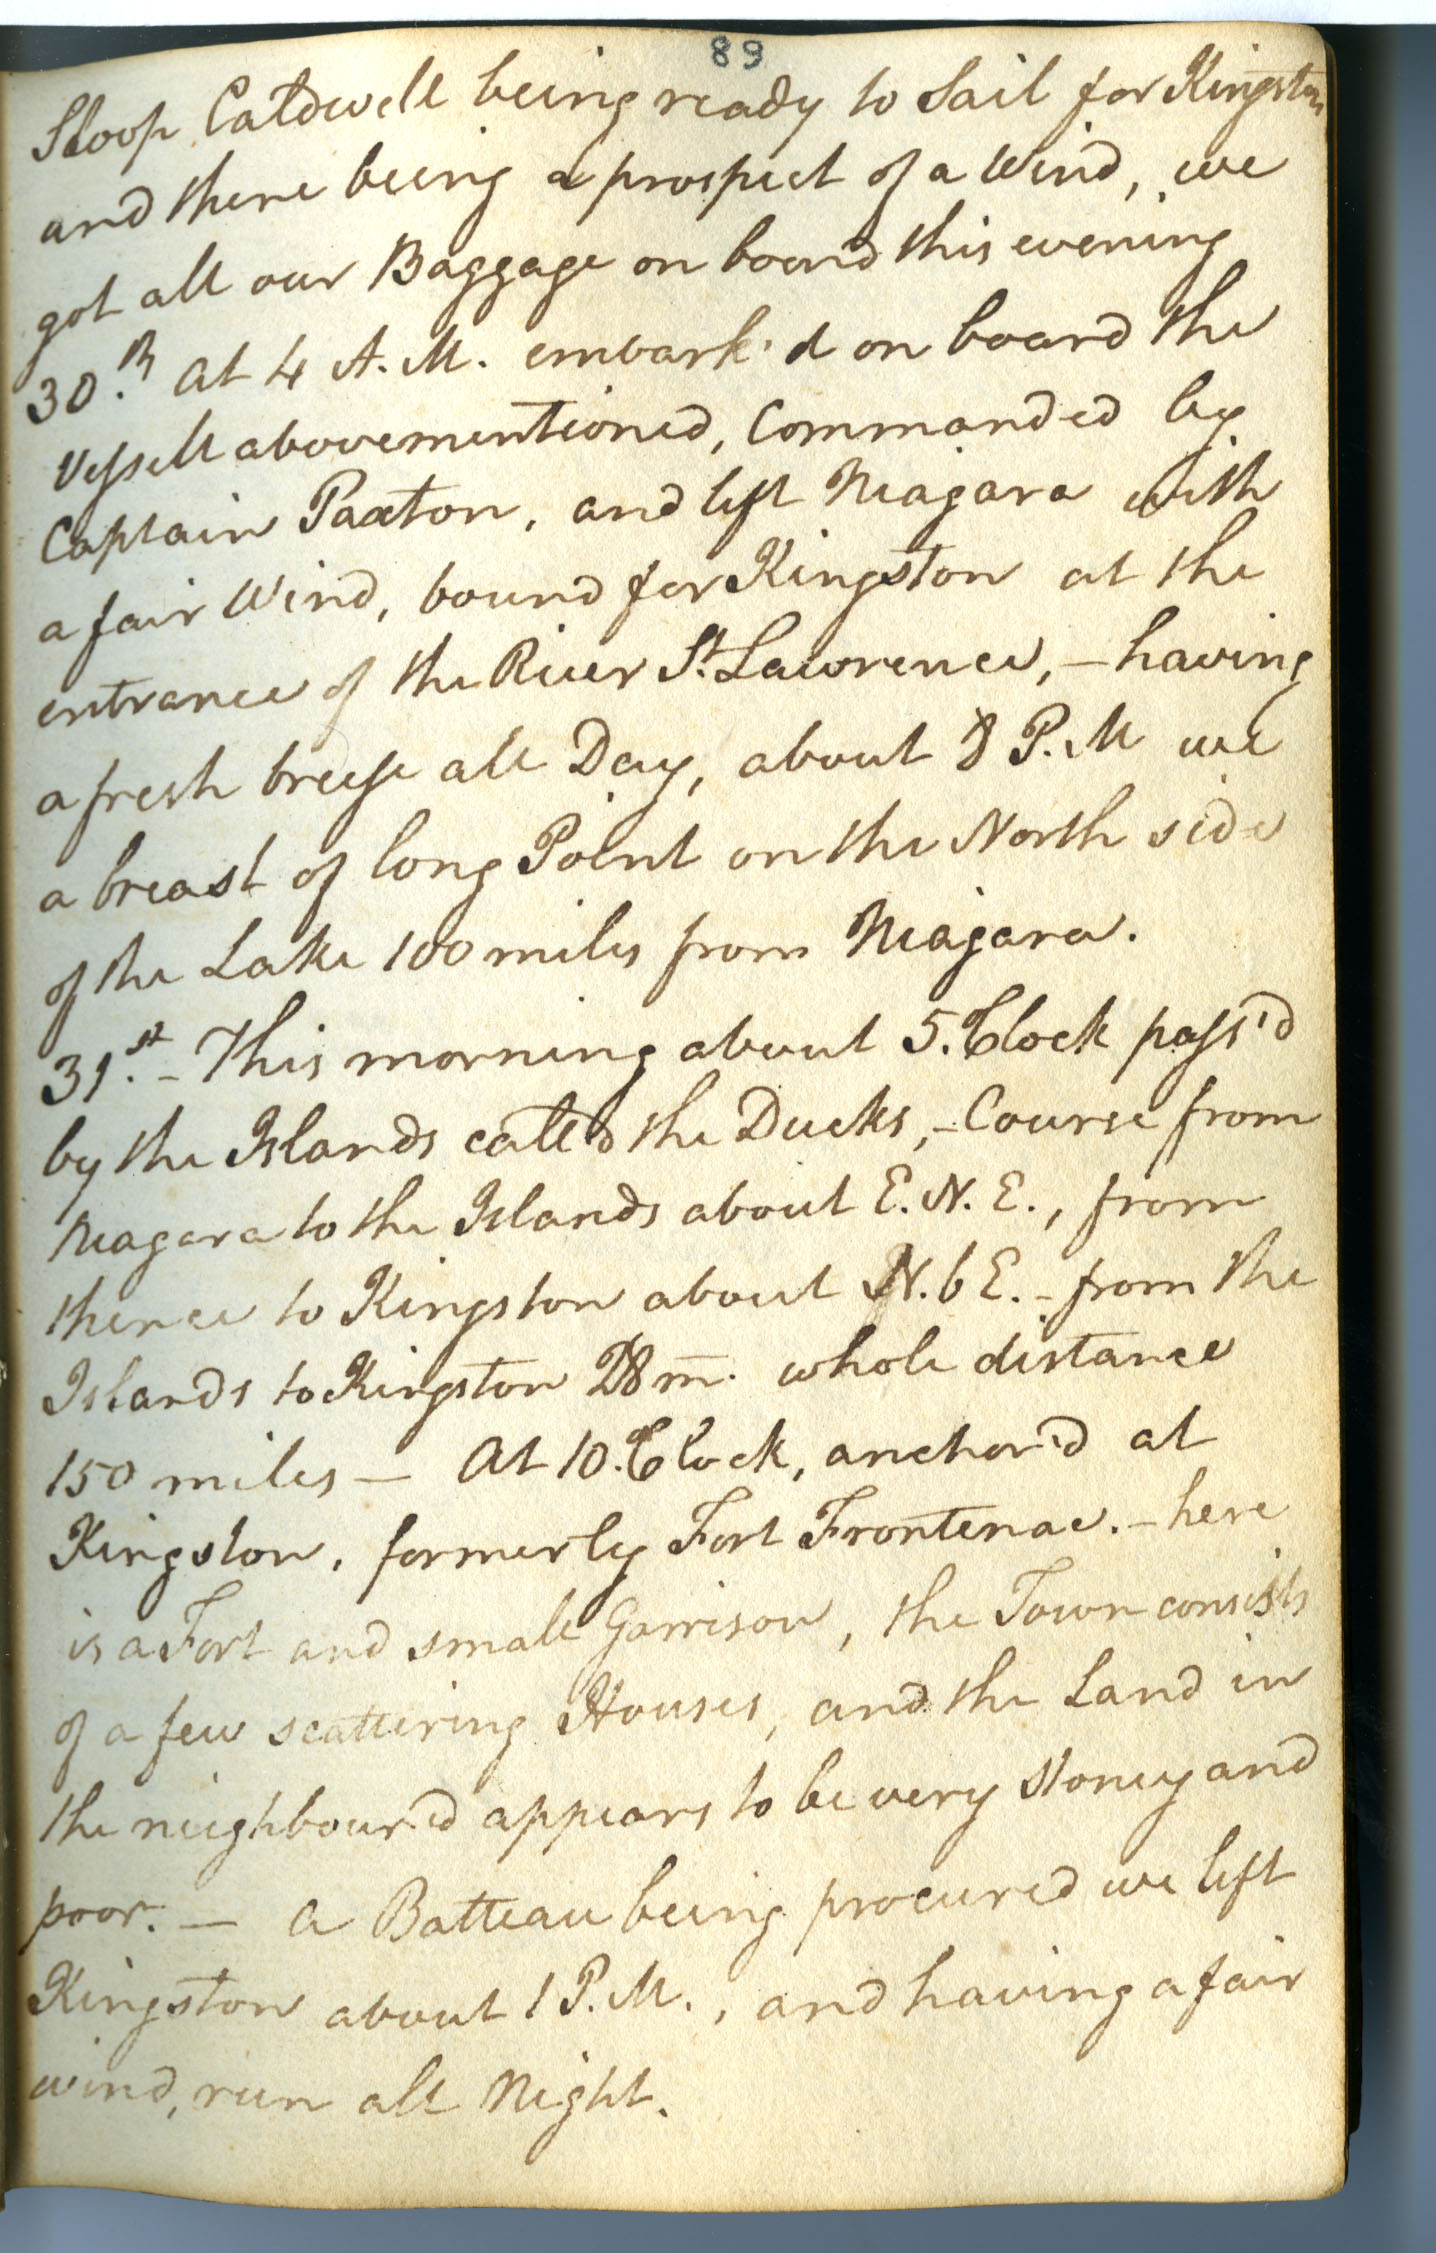 89
Sloop Caldwell being ready to Sail for Kingston
and there being a prospect of a Wind, we
got all our Baggage on board this evening
30.th At 4 A.M. embark'd on board the
Vessell abovementioned, Commanded by
Captain Paxton, and left Niagara with
a fair Wind, bound for Kingston at the
entrance of the River St. Lawrence, – having
a fresh breese all Day, about 8 P.M we
a breast of long Point on the North side
of the Lake 100 miles from Niagara.
31.st – This morning about 5.Clock pass'd
by the Islands called the Ducks, – Course from
Niagara to the Islands about E.N.E., from
thence to Kingston about N.b E. – from the
Islands to Kingston m. whole distance
150 miles — At 10.Clock, anchor'd at
Kingston, formerly Fort Frontenac. – here
is a Fort and small Garrison, the Town consists
of a few scattering Houses, and the Land in
the neighbour'd appears to be very stoney and
poor. — A Batteau being procured we left
Kingston about 1 P.M., and having a fair
wind, run all Night.